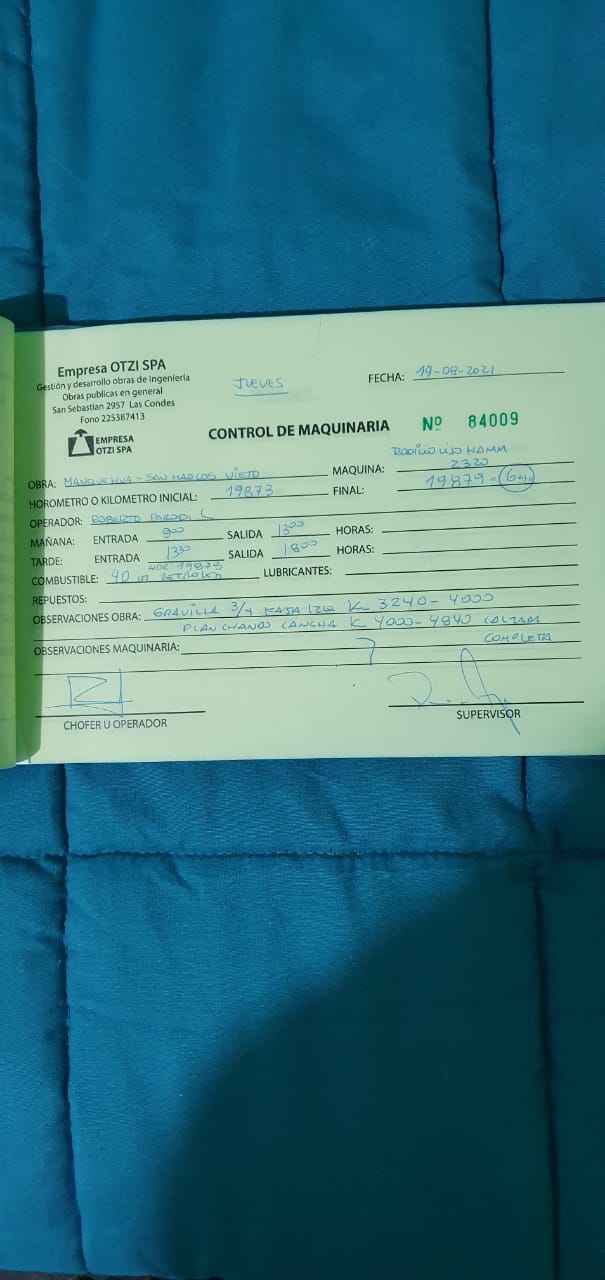 Empresa OTZI SPA
Gestión y desarrollo obras de ingeniería
Obras publicas en general
San Sebastian 2957 Las Condes
Fono 225387413
EMPRESA
OTZI SPA
JUEVES
FECHA: 19-08-2021
CONTROL DE MAQUINARIA Nº 84009
OBRA: MANQUEHUA - SAN MARCOS VIEJO MAQUINA: RODILLO LISO HAMM
2320
HOROMETRO O KILOMETRO INICIAL: 19873 FINAL: 19879 = 6
OPERADOR: ROBERTO PARODI L
MAÑANA: ENTRADA 900 SALIDA 1300 HORAS:
TARDE: ENTRADA 1330 SALIDA 1800 HORAS:
COMBUSTIBLE: 40 LTS PETROLEO LUBRICANTES:
REPUESTOS:
OBSERVACIONES OBRA: GRAVILLA 3/4 FAJA IZQ K 3240 - 4000
PLANCHANDO CANCHA K 4000 - 4840 CALZADA
COMPLETA
OBSERVACIONES MAQUINARIA:
CHOFER U OPERADOR
SUPERVISOR